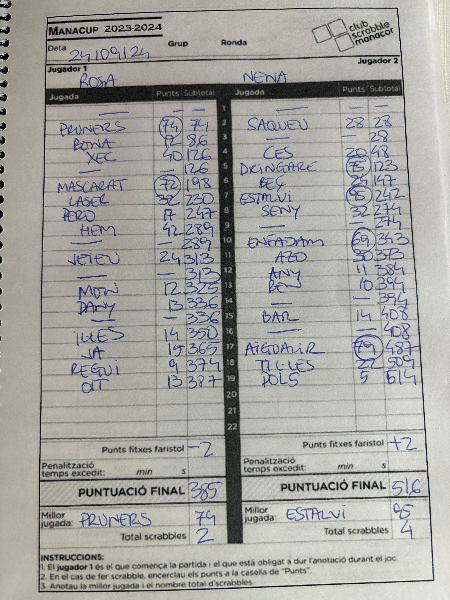 MANACUP 2023-2024
club scrabble manacor
Data 24/09/24 Grup Ronda
Jugador 1 Jugador 2
ROSA NENA
Jugada Punts Subtotal Jugada Punts Subtotal
— — — 1 — — —
PRUNERS 74 74 2 SAQUEU 28 28
BONA 12 86 3 — — 28
XEC 40 126 4 CES 20 48
— — 126 5 DRINGARE 75 123
MASCARAT 72 198 6 BEC 24 147
LASER 32 230 7 ESTALVI 95 242
PERO 17 247 8 SENY 32 274
HEM 42 289 9 — — 274
— — 289 10 ENFADAM 69 343
VEIEU 24 313 11 AZO 30 373
— — 313 12 ANY 11 384
MON 12 325 13 10 394
DANY 13 336 14 — — 394
— — 336 15 BAR 14 408
ILLES 14 350 16 — — 408
JA 15 365 17 AIGUALIR 79 487
REGUI 9 374 18 TILLES 22 509
OIT 13 387 19 POLS 5 514
20
21
22
Punts fitxes faristol -2 Punts fitxes faristol +2
Penalització temps excedit: min s Penalització temps excedit: min s
PUNTUACIÓ FINAL 385 PUNTUACIÓ FINAL 516
Millor jugada: PRUNERS 74 Millor jugada: ESTALVI 95
Total scrabbles 2 Total scrabbles 4
INSTRUCCIONS:
1. El jugador 1 és el que comença la partida i el que està obligat a dur l'anotació durant el joc.
2. En el cas de fer scrabble, encerclau els punts a la casella de "Punts".
3. Anotau la millor jugada i el nombre total d'scrabbles.